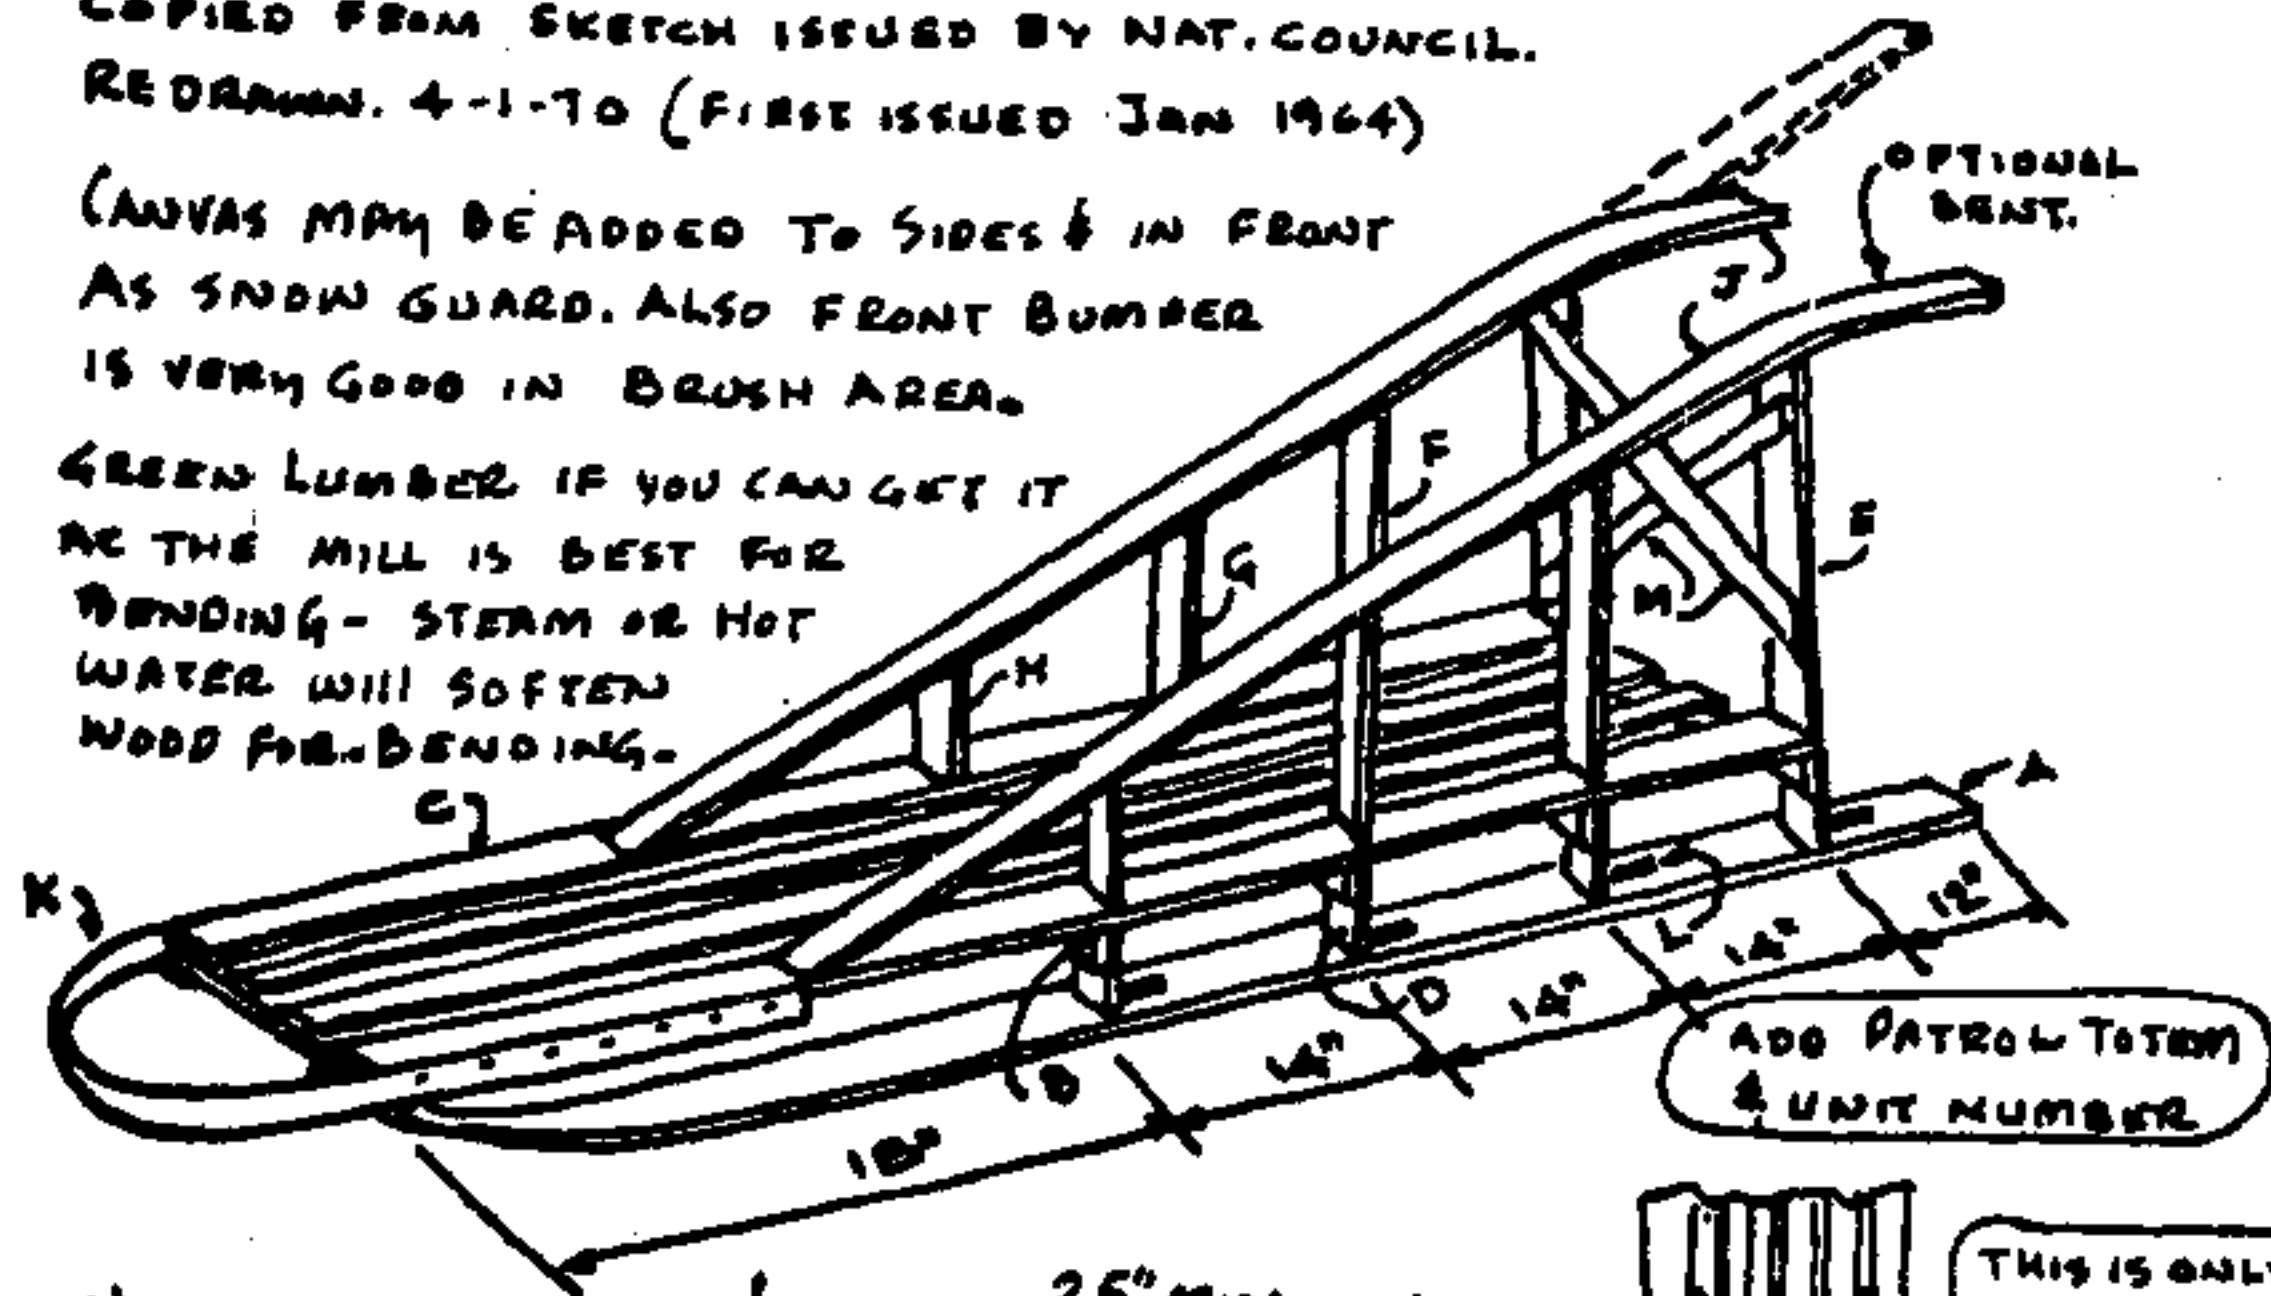 COPIED FROM SKETCH ISSUED BY NAT. COUNCIL.
REDRAWN. 4-1-70 (FIRST ISSUED JAN 1964)
CANVAS MAY BE ADDED TO SIDES & IN FRONT
AS SNOW GUARD. ALSO FRONT BUMBER
IS VERY GOOD IN BRUSH AREA.
GREEN LUMBER IF YOU CAN GET IT
AT THE MILL IS BEST FOR
BENDING - STEAM OR HOT
WATER WILL SOFTEN
WOOD FOR BENDING.
OPTIONAL
BENT.
J
F
E
G
M
H
C
A
K
L
D
B
12"
14"
14"
14"
18"
ADD PATROL TOTEM
& UNIT NUMBER
THIS IS ONLY